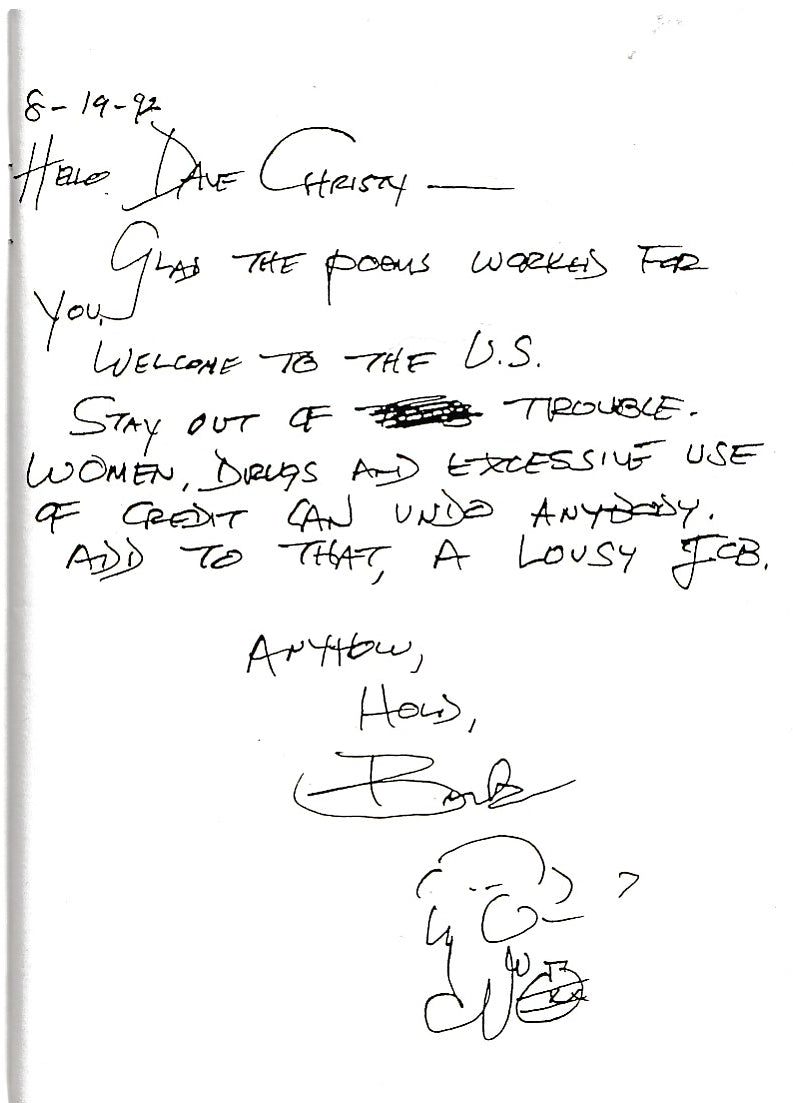 8-19-92
HELLO DAVE CHRISTY —
GLAD THE POEMS WORKED FOR
YOU.
WELCOME TO THE U.S.
STAY OUT OF TROUBLE.
WOMEN, DRUGS AND EXCESSIVE USE
OF CREDIT CAN UNDO ANYBODY.
ADD TO THAT, A LOUSY JOB.
ANYHOW,
HOLD,